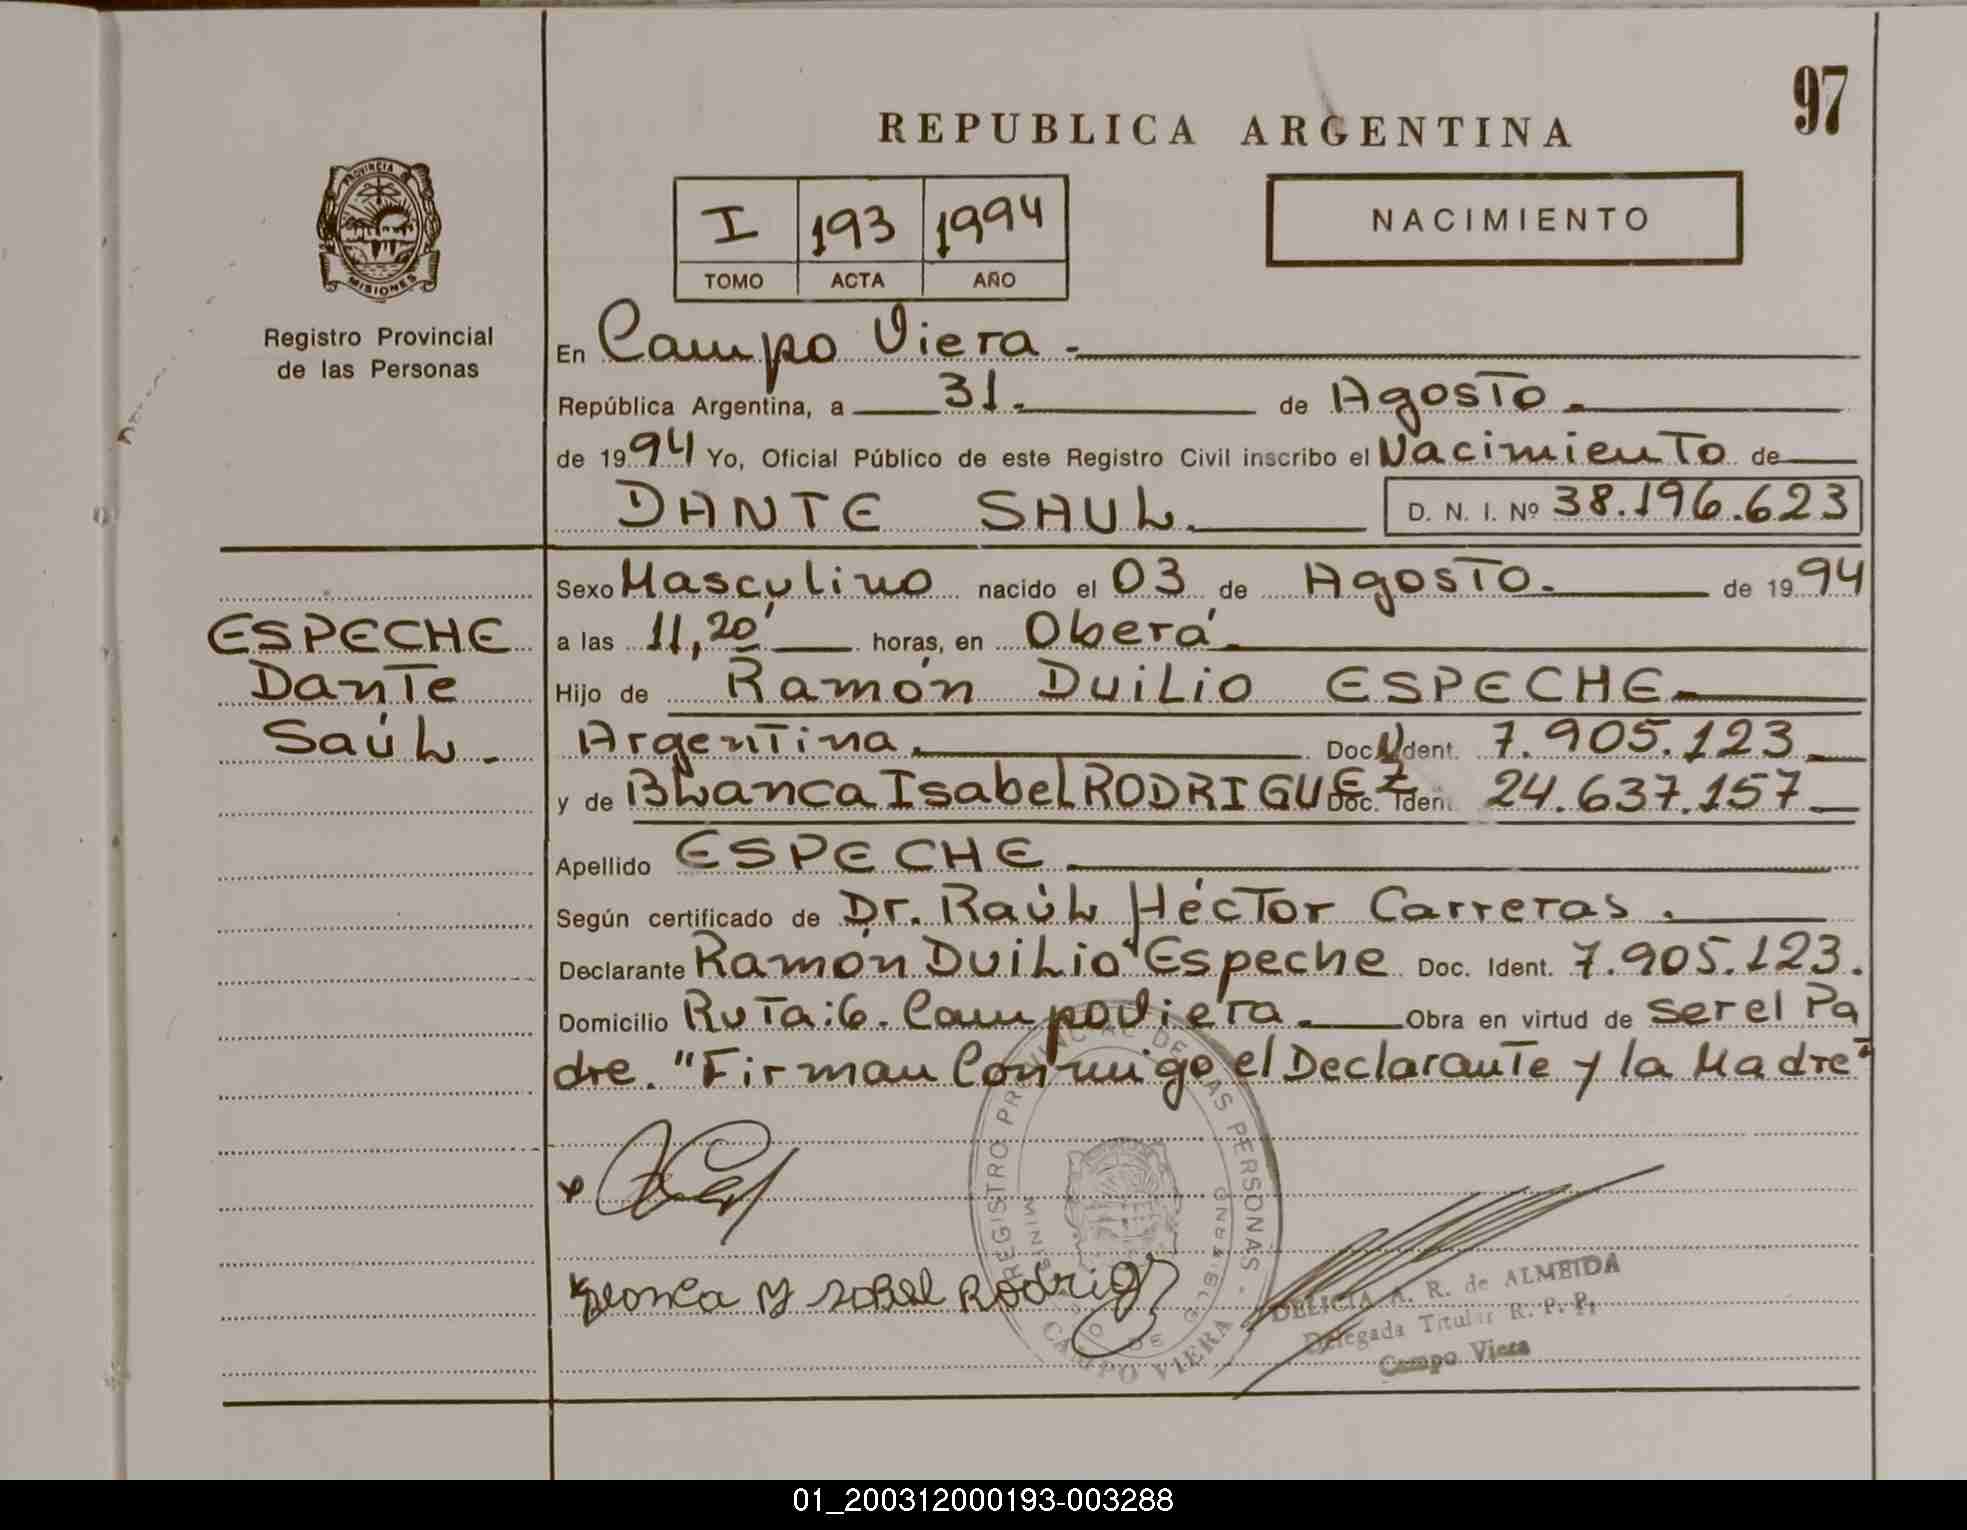 97
REPUBLICA ARGENTINA
PROVINCIA
MISIONES
Registro Provincial
de las Personas
I 193 1994
TOMO ACTA AÑO
NACIMIENTO
En Campo Viera.
República Argentina, a 31. de Agosto.
de 1994 Yo, Oficial Público de este Registro Civil inscribo el Nacimiento de
DANTE SAUL. D. N. I. Nº 38.196.623
ESPECHE
Dante
Saúl.
Sexo Masculino nacido el 03 de Agosto. de 1994
a las 11,20' horas, en Oberá.
Hijo de Ramón Duilio ESPECHE
Argentina. Doc. Ident. 7.905.123
y de Blanca Isabel RODRIGUEZ Doc. Iden. 24.637.157
Apellido ESPECHE
Según certificado de Dr. Raúl Héctor Carreras.
Declarante Ramón Duilio Espeche Doc. Ident. 7.905.123.
Domicilio Ruta:6. Campo Viera. Obra en virtud de ser el Pa
dre. "Firman Conmigo el Declarante y la Madre"
REGISTRO PROVINCIAL DE LAS PERSONAS
CAMPO VIERA
Blanca Ysabel Rodrig
DELICIA A. R. de ALMEIDA
Delegada Titular R. P. P.
Campo Viera
01_200312000193-003288